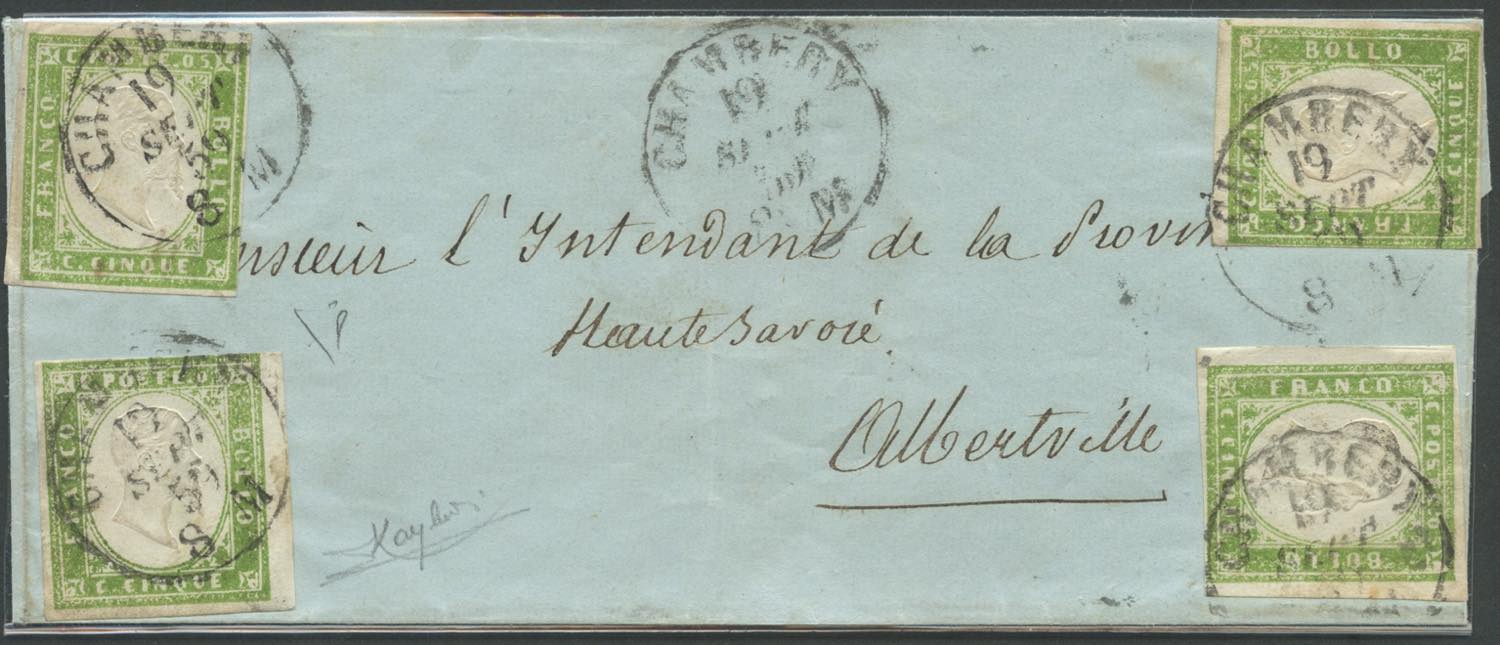 CHAMBERY
19
SEPT
59
8 M
FRANCO
BOLLO
C. CINQUE
CHAMBERY
19
M
BOLLO
C. CINQUE
FRANCO
CHAMBERY
19
SEPT
8 M
nsieur l'Intendant de la Provin
Haute Savoie
Albertville
FRANCO
POSTE
BOLLO
C. CINQUE
19
8 M
FRANCO
C POS
BOLLO
CHAMBERY
SEPT